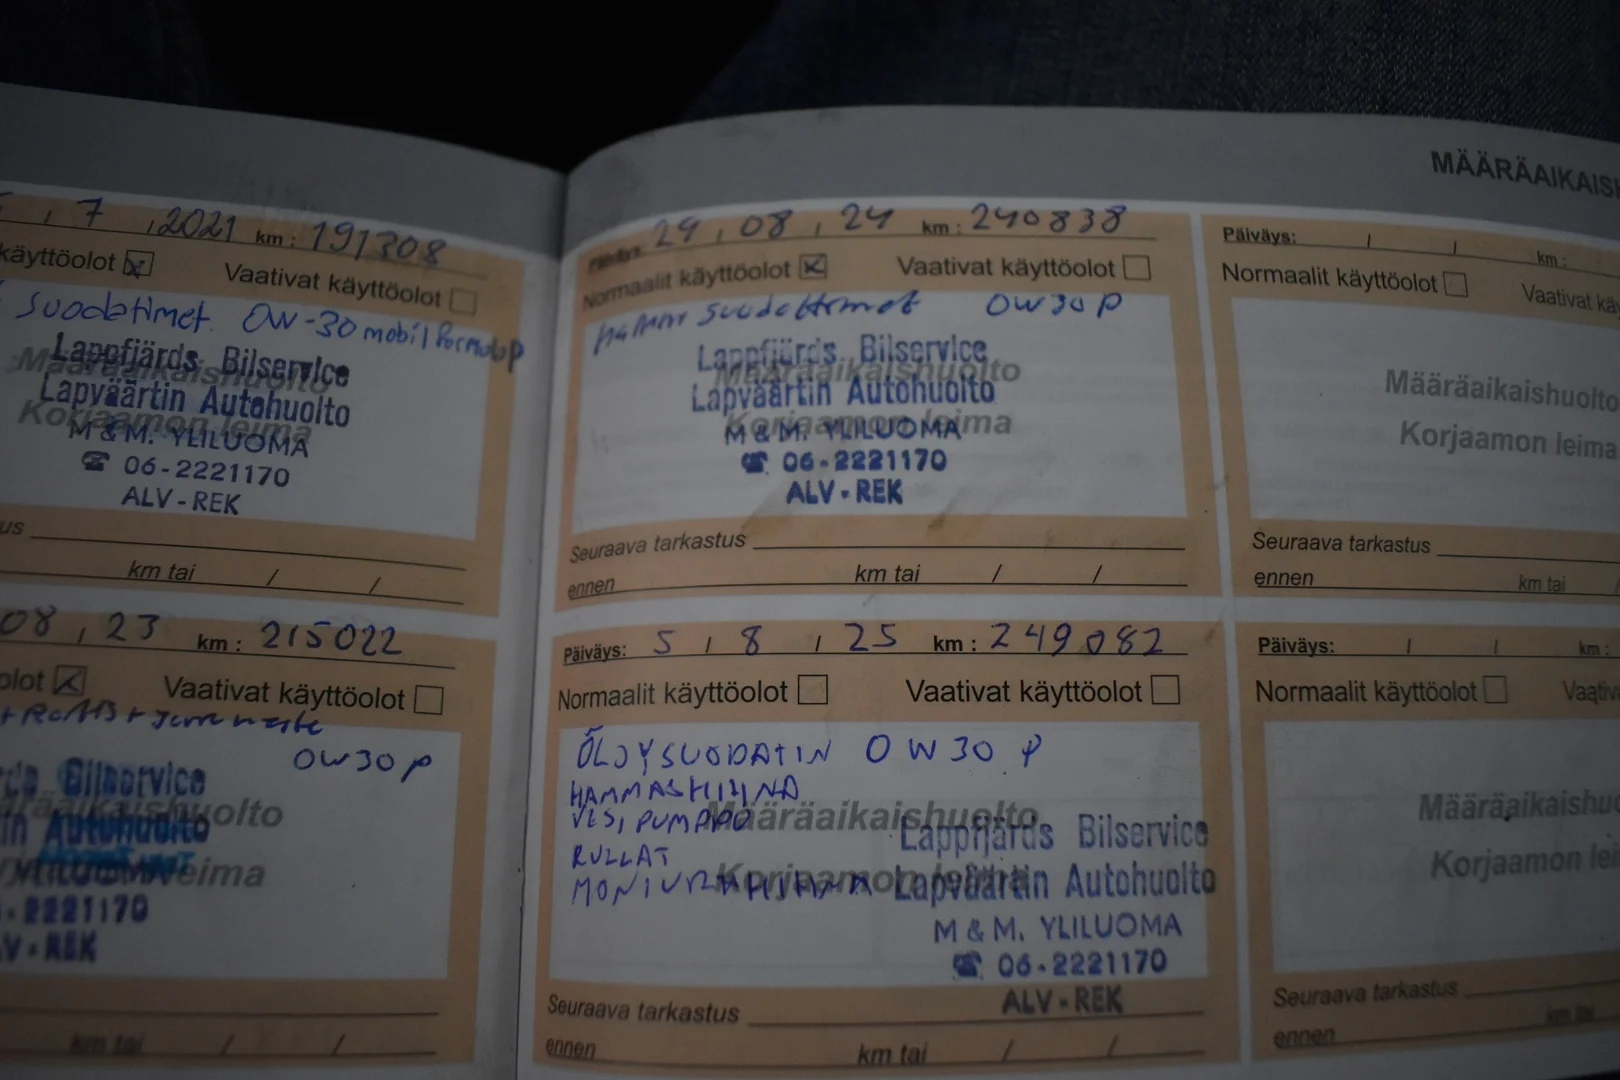 MÄÄRÄAIKAIS
7 , 2021 km : 191308
käyttöolot Vaativat käyttöolot
suodatimet. OW-30 mobil
Lappfjärds Bilservice
Määräaikaishuolto
Lapväärtin Autohuolto
Korjaamon leima
M & M. YLILUOMA
☎ 06-2221170
ALV - REK
km tai / /
08 , 23 km : 215022
Vaativat käyttöolot
OW30 P
Bilservice
Autohuolto
2221170
REK
km tai / /
Päiväys: 29 , 08 , 24 km : 240838
Normaalit käyttöolot Vaativat käyttöolot
OW30 P
Lappfjärds Bilservice
Määräaikaishuolto
Lapväärtin Autohuolto
Korjaamon leima
M & M. YLILUOMA
☎ 06-2221170
ALV - REK
Seuraava tarkastus
ennen km tai / /
Päiväys: 5 / 8 / 25 km : 249082
Normaalit käyttöolot Vaativat käyttöolot
ÖLJYSUODATIN OW30 P
HAMMASHIHNA
VESIPUMPPU
Määräaikaishuolto
Lappfjärds Bilservice
RULLAT
MONIURAHIHNA
Korjaamon leima
Lapväärtin Autohuolto
M & M. YLILUOMA
☎ 06-2221170
ALV - REK
Seuraava tarkastus
ennen km tai / /
Päiväys: / / km :
Normaalit käyttöolot
Määräaikaishuolto
Korjaamon leima
Seuraava tarkastus
ennen km tai /
Päiväys: / / km :
Normaalit käyttöolot
Määräaikaishuo
Korjaamon lei
Seuraava tarkastus
ennen km tai